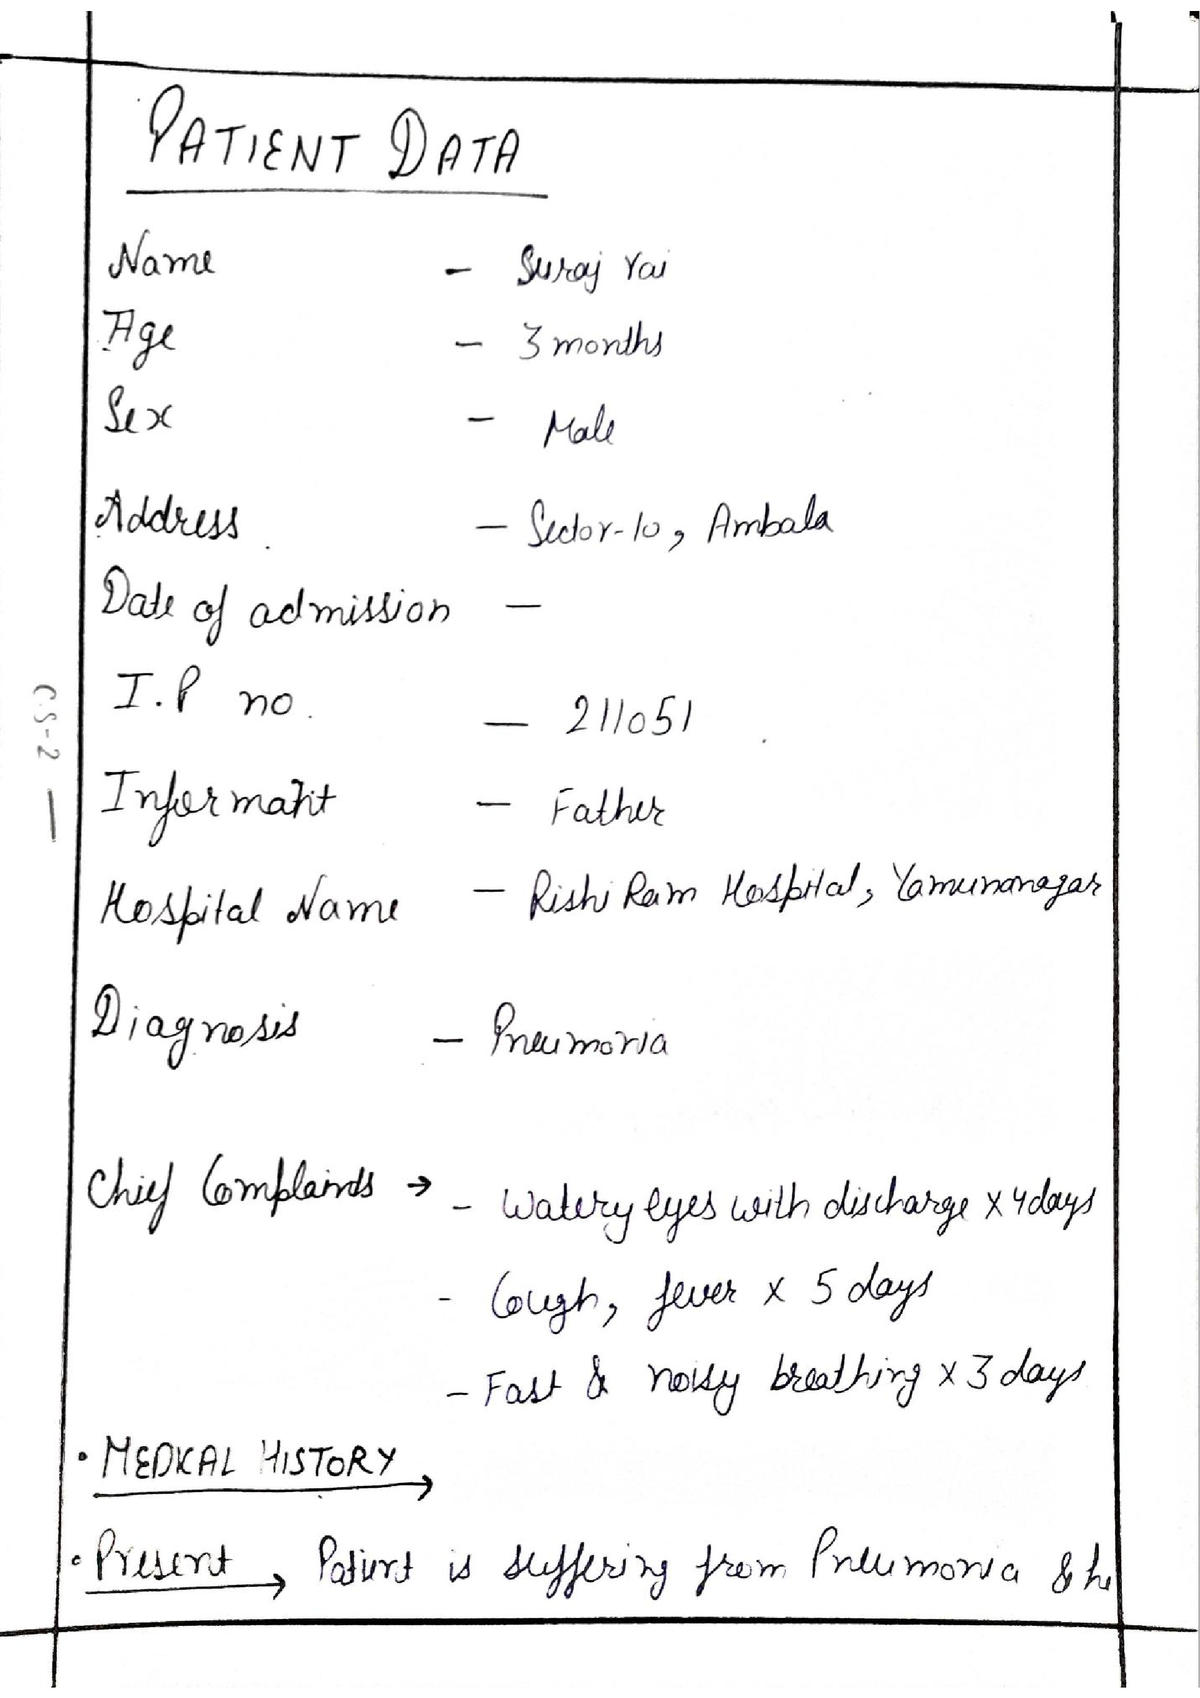 PATIENT DATA
Name - Suraj Rai
Age - 3 months
Sex - Male
Address - Sector-10, Ambala
Date of admission -
I.P no. - 211051
Informant - Father
Hospital Name - Rishi Ram Hospital, Yamunanagar
Diagnosis - Pneumonia
Chief Complaints → - Watery eyes with discharge x 4 days
- Cough, fever x 5 days
- Fast & noisy breathing x 3 days
• MEDICAL HISTORY →
• Present → Patient is suffering from Pneumonia &
CS-2 —